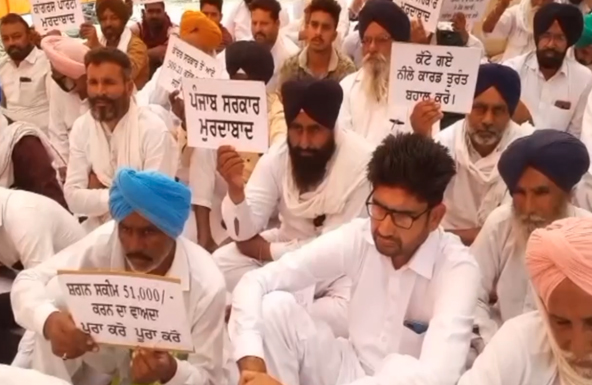 ਕਾਂਗਰਸ ਪਾਰਟੀ
ਮੁਰਦਾਬਾਦ
ਪੰਜਾਬ ਸਰਕਾਰ
ਮੁਰਦਾਬਾਦ
ਮੁਰਦਾਬਾਦ
ਕੱਟੇ ਗਏ
ਨੀਲੇ ਕਾਰਡ ਤੁਰੰਤ
ਬਹਾਲ ਕਰੋ।
ਸ਼ਗਨ ਸਕੀਮ 51,000/-
ਕਰਨ ਦਾ ਵਾਅਦਾ
ਪੂਰਾ ਕਰੋ ਪੂਰਾ ਕਰੋ